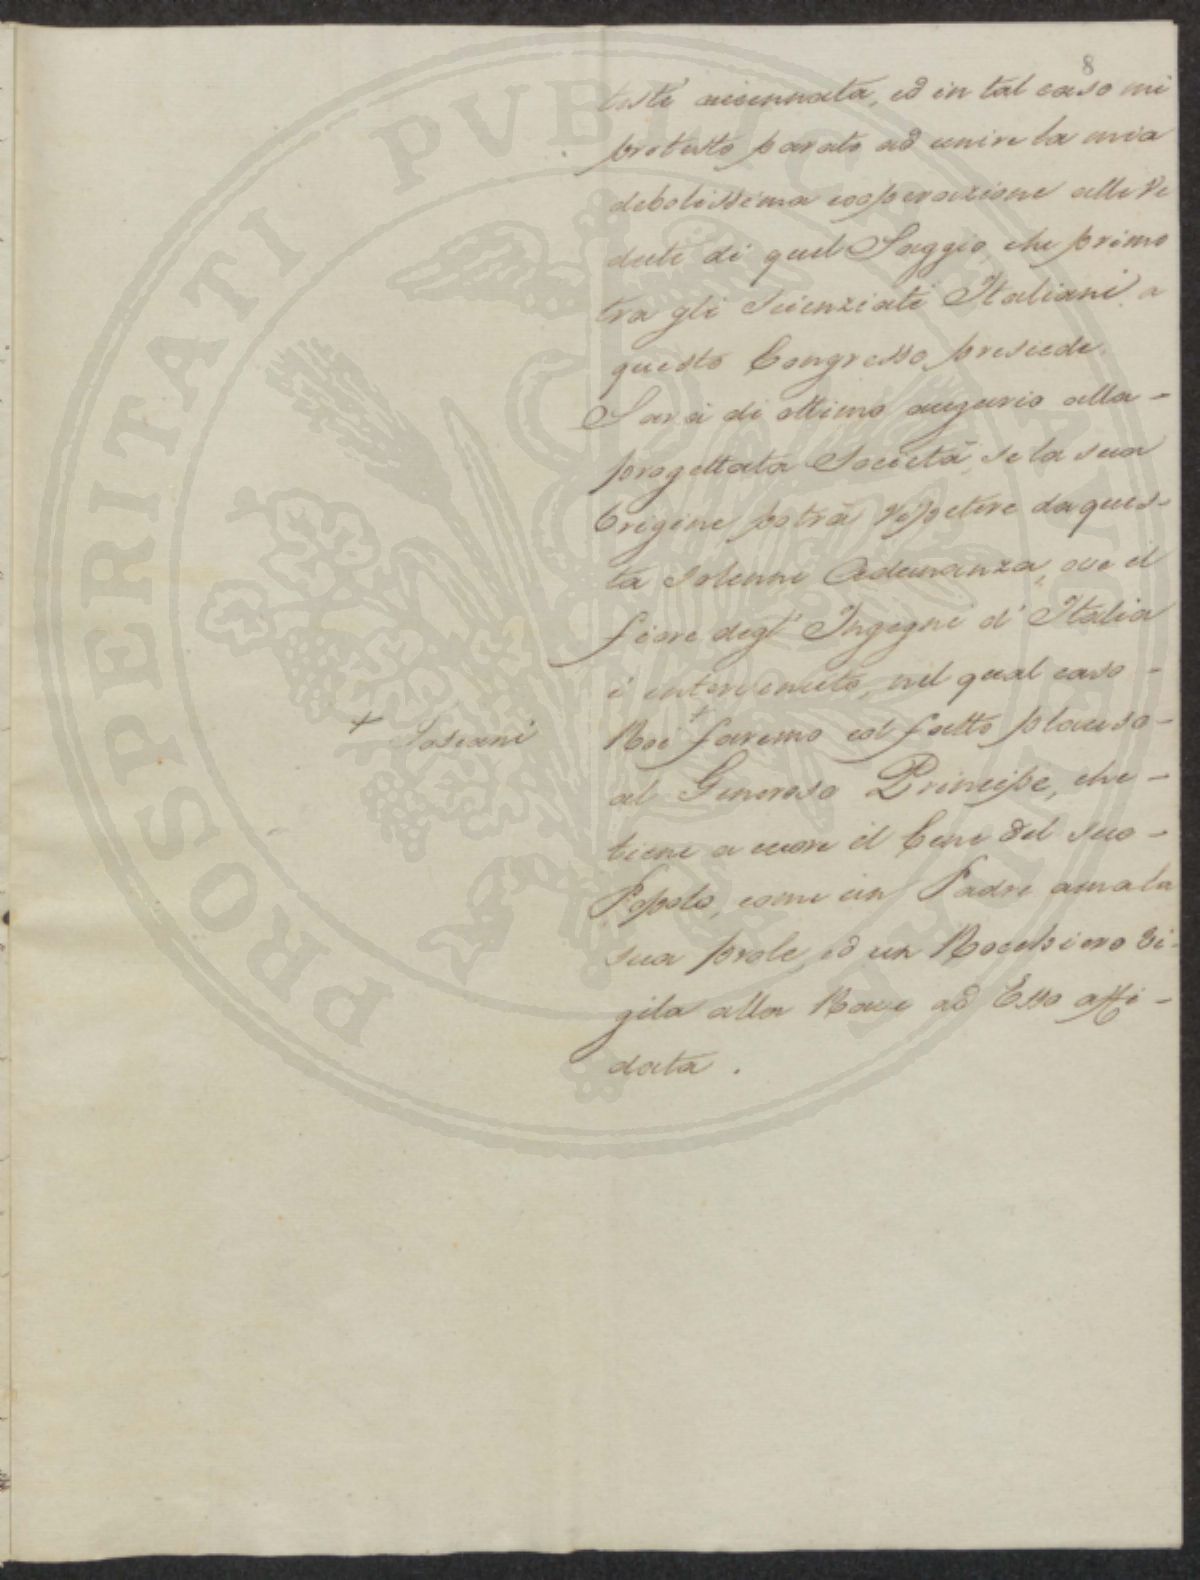 8
testè accennata, ed in tal caso mi
protesto parato ad unire la mia
debolissima cooperazione alle ve
dute di quel Saggio, che primo
tra gli Scienziati Italiani a
questo Congresso presiede.
Sarà di ottimo augurio alla -
progettata Società, se la sua
Origine potrà ripetere da ques-
ta solenne Adunanza, ove il
fiore degl' Ingegni d' Italia
è intervenuto, nel qual caso -
+ Toscani
Noi + faremo col fatto plauso -
al Generoso Principe, che -
tiene a cuore il bene del suo -
Popolo, come un Padre ama la
sua prole, ed un Nocchiero vi-
gila alla Nave ad Esso affi -
data .
PROSPERITATI PVBLIC